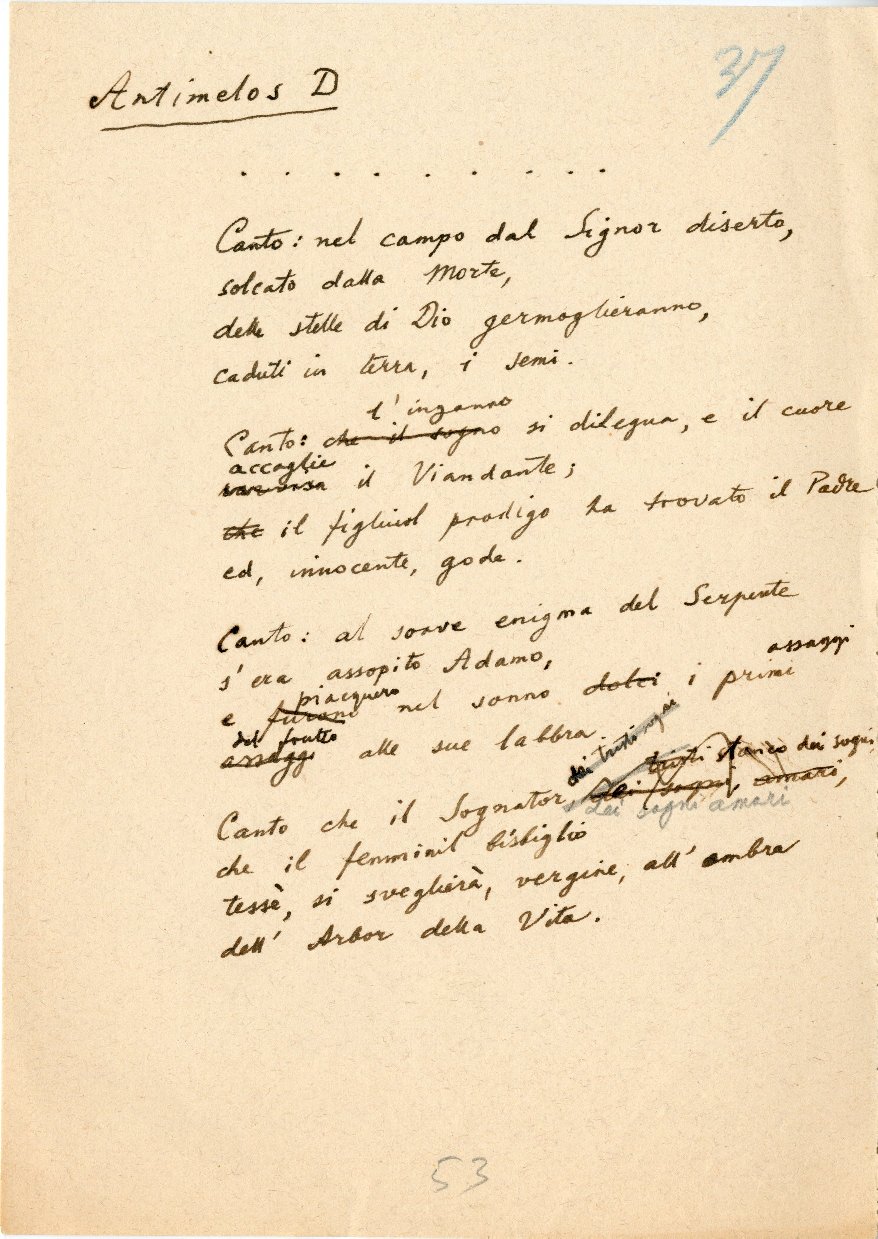 Antimelos D
37
. . . . . . . . .
Canto: nel campo dal Signor diserto,
solcato dalla Morte,
delle stelle di Dio germoglieranno,
caduti in terra, i semi.
l'inganno
Canto: che il sogno si dilegua, e il cuore
accoglie
il Viandante;
che il figliuol prodigo ha trovato il Padre
ed, innocente, gode.
Canto: al soave enigma del Serpente
s'era assopito Adamo,
assaggi
piacquero
e furono nel sonno dolci i primi
del frutto
assaggi alle sue labbra.
dei tristi sogni
tristi stanco dei sogni
Canto che il Sognator, dei sogni, amari,
dei sogni amari
che il femminil bisbiglio
tessè, si sveglierà, vergine, all'ombra
dell'Arbor della Vita.
53